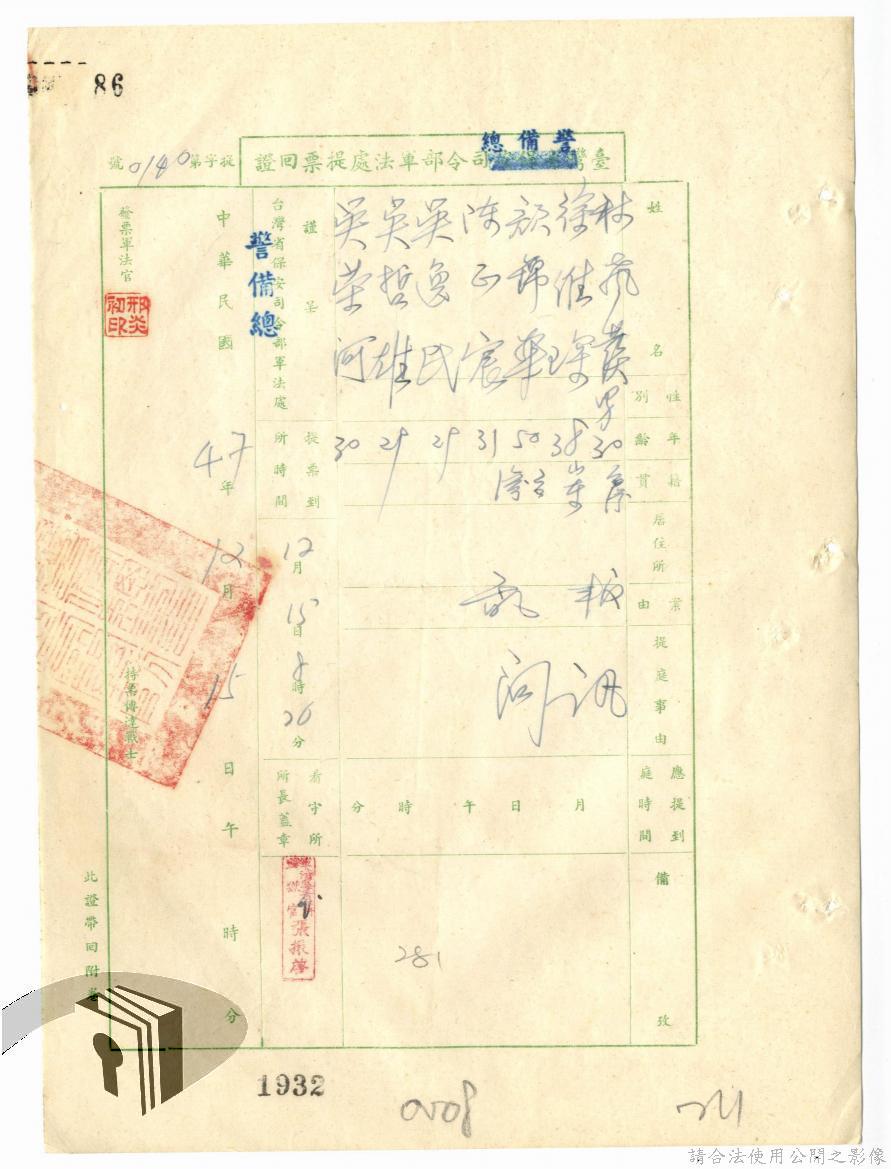 86
警備總
臺灣省保安司令部軍法處提票回證
提字第0140號
姓名
林
徐維琛
顏錦華
陳正宸
吳逸民
吳哲雄
吳榮河
性別
男
年齡
30
38
50
31
29
29
30
籍貫
居住所
業由
叛亂
提庭事由
訊問
應提到庭時間
月
日
午
時
分
備攷
281
謹呈
台灣省保安司令部軍法處
警備總
提票到所時間
12月15日8時20分
看守所所長蓋章
張振
中華民國47年12月15日午時分
發票軍法官
邢炎初印
持票傳達戰士
此證帶回附卷
1932
請合法使用公開之影像